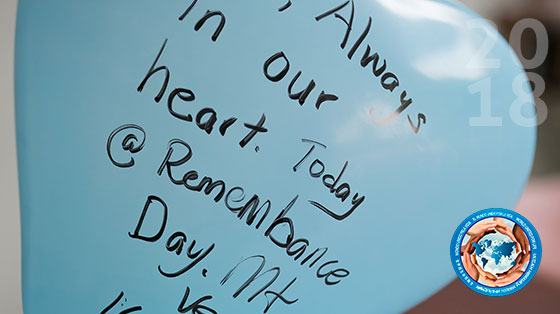 , Always
in our
heart. Today
@ Remembance
Day.
20
18